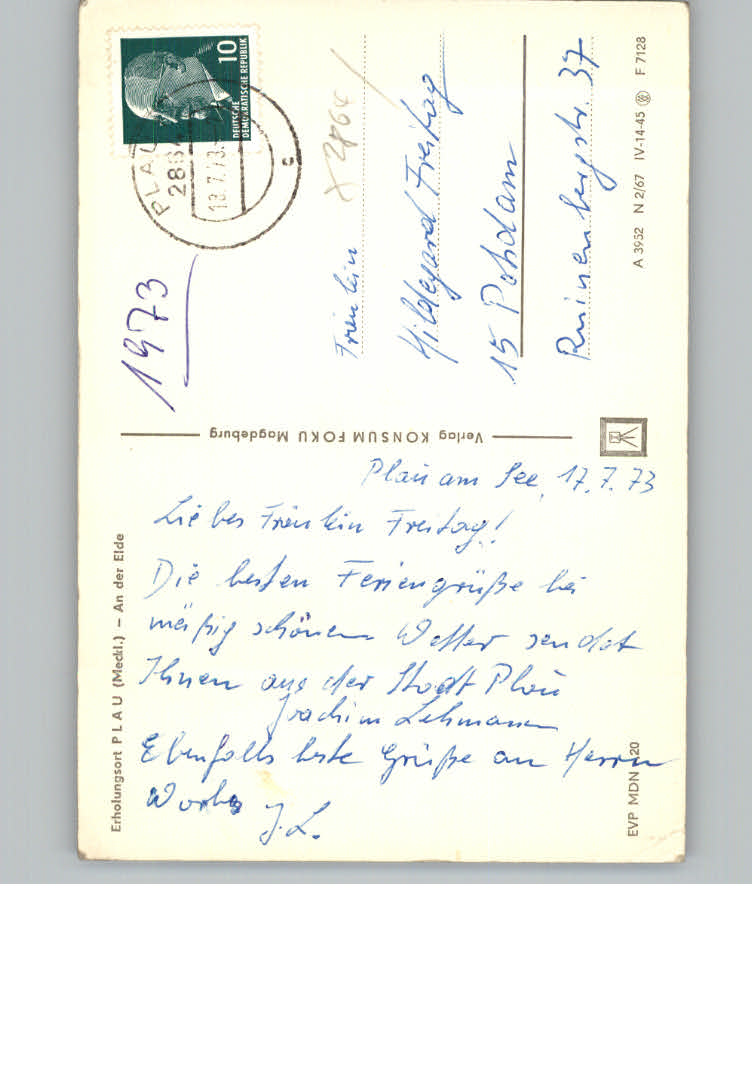 10
DEUTSCHE
DEMOKRATISCHE REPUBLIK
PLAU
286
18.7.73
c
1973
x 2864
Fräulein
Hildegard Freitag
15 Potsdam
Ruinenbergstr. 37
A 3952 N 2/67 IV-14-45 F 7128
Verlag KONSUM FOKU Magdeburg
Erholungsort PLAU (Meckl.) – An der Elde
Plau am See, 17.7.73
Liebes Fräulein Freitag!
Die besten Feriengrüße bei
mäßig schönem Wetter sendet
Ihnen aus der Stadt Plau
Joachim Lehmann
Ebenfalls beste Grüße an Herrn
J.L.
EVP MDN 20